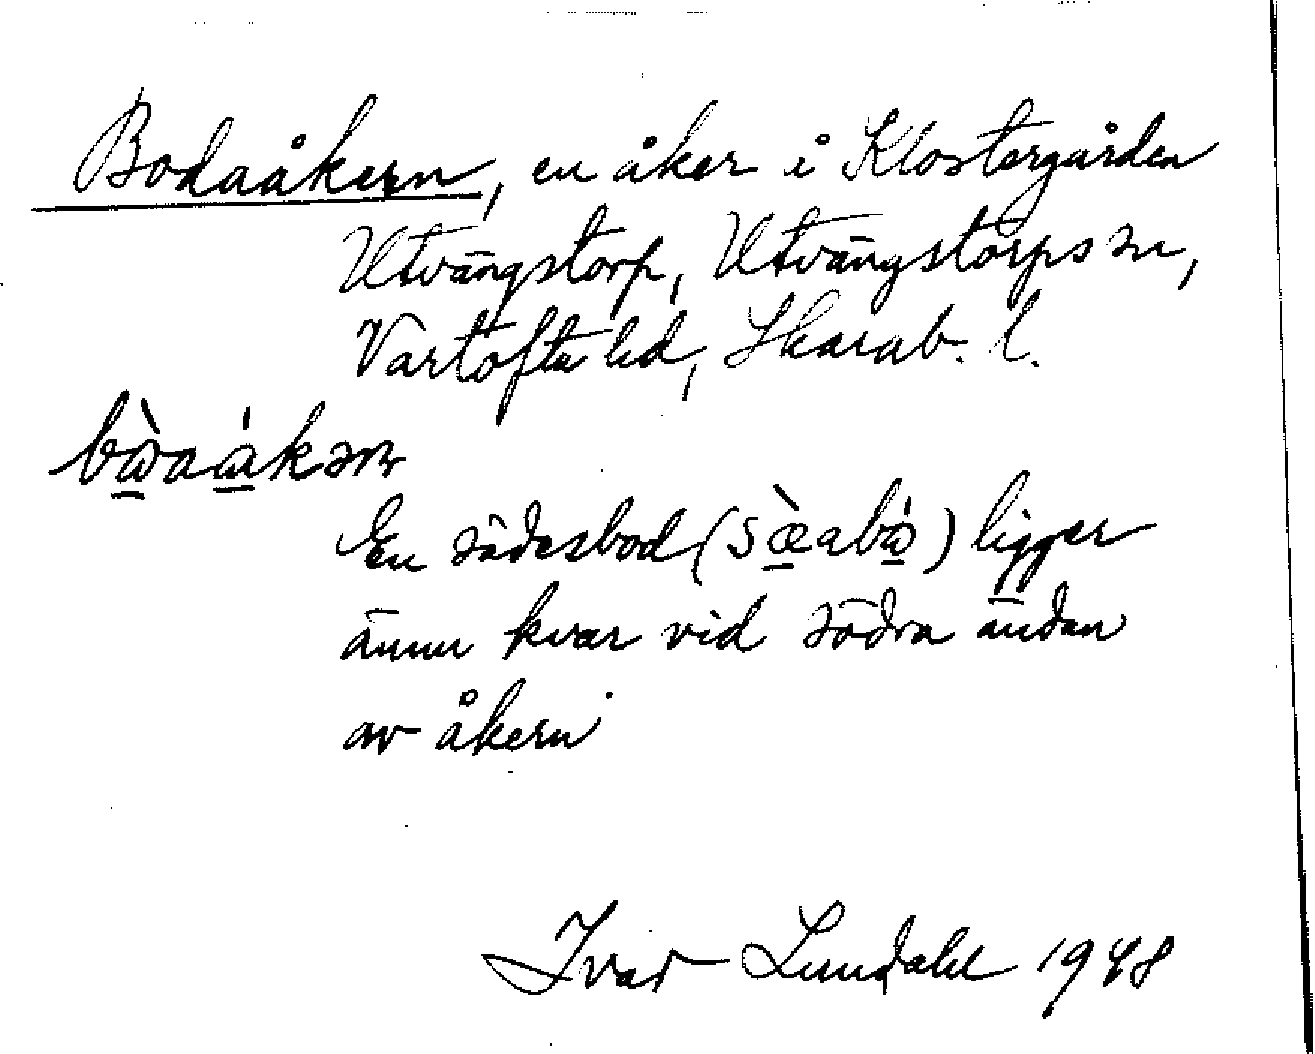 Bodaåkern, en åker i Klostergården
Utvängstorp, Utvängstorps sn,
Vartofta hd, Skarab. l.
En sädesbod (sæ̀abɷ́) ligger
ännu kvar vid södra ändan
av åkern.
Ivar Lundahl 1948